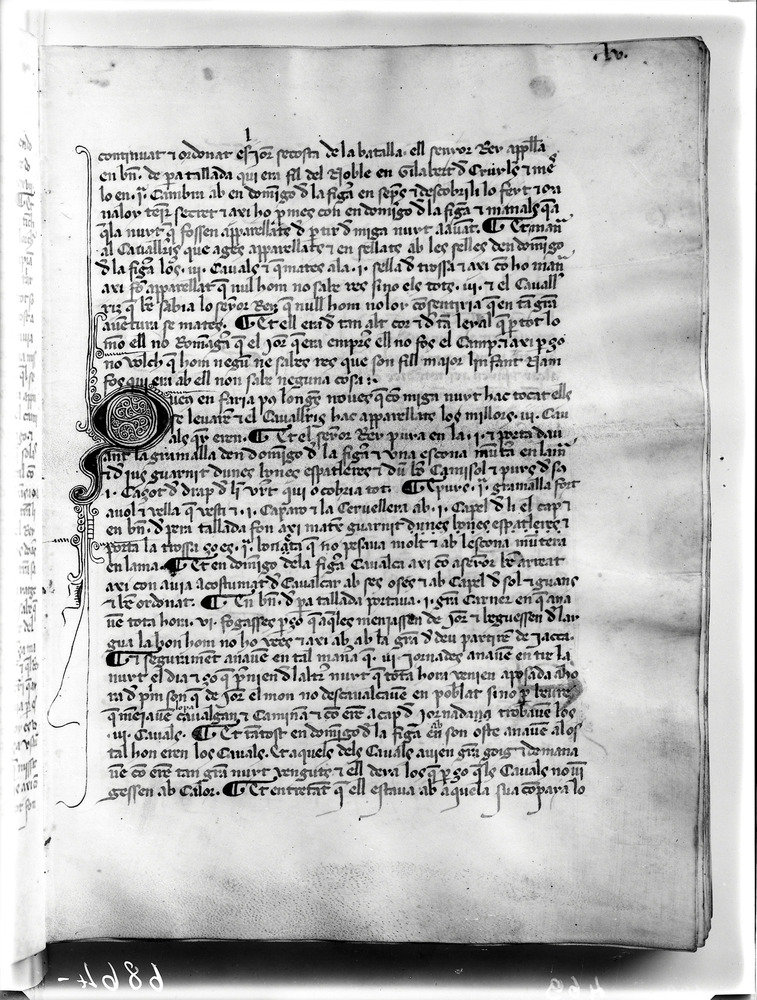 .lv.
continuat ⁊ ordonat el jor secosta de la batalla. ell senyor Rey appella
en bn̄. de pa tallada qui era fil del Noble en Gilabert d̄ Cruyles ⁊ me
lo en .j. Cambra ab en domīgo d̄ la figa en seps ⁊ descobrili lo feyt ⁊ on
ualor
secret ⁊ axi ho pmes con en domīgo d̄ la figa ⁊ manals q̄ a
q̄la nuyt q̄ fossen apparellats d̄ ptir d̄ miga nuyt aauāt. ¶ Et manā
al Cavallriz que ages apparellats ⁊ en sellats ab les selles den domīgo
d̄ la figa los .iii. Cavals ⁊ q̄ mates a la .i. sella d̄ trossa ⁊ axi cō ho manā
axi fo apparellat q̄ nul hom no sabe res sino els tots .iii. ⁊ el Cavall
riz q̄ be sabia lo seyor Rey q̄ null hom no lor cōsentiria q̄ en tā grā
auentura se mates. ¶ Et ell era d̄ tan alt cor ⁊ d̄ tā leyal q̄ p tot lo
mō ell no Romāgra q̄ el jor q̄ era empres ell no fos el Camp. ⁊ axi p ço
no volch q̄ hom negū ne sabes res que son fill maior linfant Nam
fos qui era ab ell non sabe neguna cosa.
Queus en faria pus longes noues q̄ cō miga nuyt hac tocat ells
se leuarē ⁊ el Cavallriz hac apparellats los millors .iii. Cau
als q̄ y eren. ¶ Et el seyor Rey puya en la .i. ⁊ porta dau
ant la gramalla den domīgo d̄ la figa ⁊ vna escona mūtera en la mā
⁊ d̄ jus guarnit dunes bones espatleres ⁊ dū be Camisol ⁊ puys d̄ su
.i. Casot d̄ drap d̄ li vert qui o cobria tot. ¶ E puys .j. gramalla fort
auol ⁊ vella q̄ vesti ⁊ .i. Caparo ⁊ la Cervellera ab .i. Capel d̄ li el cap ⁊
en bn̄. d̄ pera tallada fon axi mateix guarnit dunes bones espatleres ⁊
porta la trossa ço es .j. boriaca q̄ no pesaua molt ⁊ ab lescona mūtera
en la ma. ¶ Et en domīgo de la figa Cavalca axi cō aseyor be arreat
axi con auia acostumat d̄ Cavalcar ab ses oses ⁊ ab Capel d̄ sol ⁊ guans
⁊ be ordonat. ¶ En bn̄. d̄ pa tallada portava .i. grā Carner en q̄ ana
uē tota hora .vi. fogasses p ço q̄ aq̄les meniassen de jor ⁊ beguessen d̄ lay
gua la hon hom no ho veés ⁊ axi ab ab la grā d̄ deu partirē de Iacca.
¶ Et segurament anauē en tal mana q̄ .iii. jornades anauē entre la
nuyt el dia ⁊ ço q̄ p̄nien d̄ laltra nuyt q̄ tota hora venien aposada a ho
ra d̄ pm son q̄ de jor el mon no descavalcauē en poblat sino p beure
q̄ meiauē caualgan ⁊ Caminā ⁊ cō erē a cap d̄ jornada y trobauē los
.iii. Cavals. ¶ Et tātost en domīgo d̄ la figa ab son oste anauē a los
tal hon eren los Cavals. Et aquels dels Cavals auien grā goig ⁊ demana
uē cō erē tan grā nuyt venguts ⁊ ell deya los q̄ p ço q̄ls Cavals no vi
gessen ab Calor. ¶ Et entretāt q̄ ell estava ab aquela sua cōpaya lo
6864-